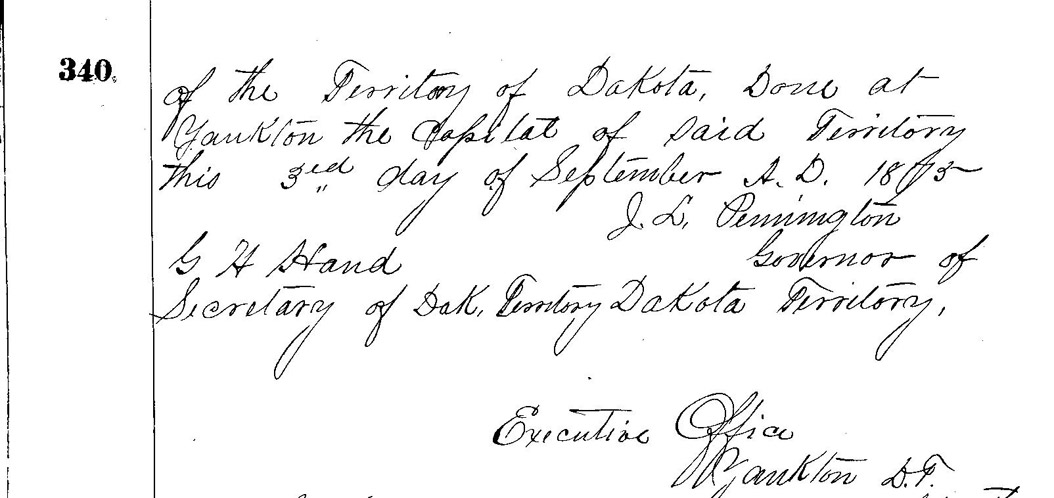 340.
of the Territory of Dakota, Done at
Yankton the Capital of said Territory
this 3rd day of September A.D. 1875
J. L. Pennington
G H Hand Governor of
Secretary of Dak. Territory Dakota Territory,
Executive Office
Yankton D.T.